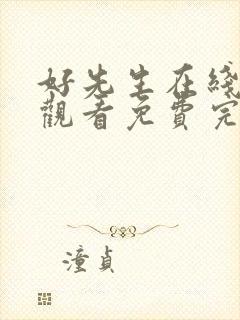 好先生在綫
觀看免費完
潼貞